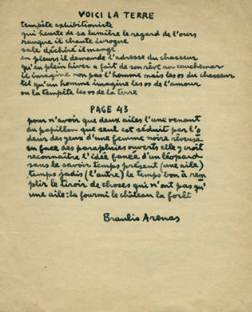 VOICI LA TERRE
tempête exhibitionniste
qui heurte de sa lumière le regard de l'ours
rauque il chante ivrogne
sale déchiré il mange
en pleurs il demande l'adresse du chasseur
qu'au plein hiver a fait de son rêve un cauchemar
il imagine non pas l'homme mais les os du chasseur
tel qu'un homme imagine les os de l'amour
ou la tempête les os de la terre
PAGE 43
pour n'avoir que deux ailes l'une venant
du papillon que seul est séduit par l'o
deur des yeux d'une femme noire
en face des parapluies ouverts elle y croit
reconnaître l'idée fanée d'un léopard
sans le savoir temps présent (une aile)
temps jadis (l'autre) le temps bon à rem
plir le tiroir de choses qui n'ont pas qu'
une aile: la fourmi le château la forêt
Braulio Arenas